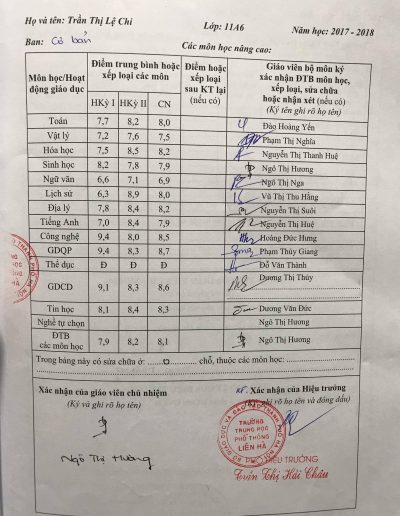 Họ và tên: Trần Thị Lệ Chi Lớp: 11A6 Năm học: 2017 - 2018
Ban: Cơ bản Các môn học nâng cao:
Môn học/Hoạt động giáo dục
Điểm trung bình hoặc xếp loại các môn
HKỳ I HKỳ II CN
Điểm hoặc xếp loại sau KT lại (nếu có)
Giáo viên bộ môn ký xác nhận ĐTB môn học, xếp loại, sửa chữa hoặc nhận xét (nếu có)
(Ký tên ghi rõ họ tên)
Toán 7,7 8,2 8,0 Đào Hoàng Yến
Vật lý 7,2 7,6 7,5 Phạm Thị Nghĩa
Hóa học 7,5 8,5 8,2 Nguyễn Thị Thanh Huệ
Sinh học 8,2 7,8 7,9 Ngô Thị Hương
Ngữ văn 6,6 7,1 6,9 Ngô Thị Nga
Lịch sử 6,3 8,9 8,0 Vũ Thị Thu Hằng
Địa lý 7,8 8,4 8,2 Nguyễn Thị Suôi
Tiếng Anh 7,0 8,4 7,9 Nguyễn Thị Huệ
Công nghệ 9,4 8,0 8,5 Hoàng Đức Hưng
GDQP 9,4 8,3 8,7 Phạm Thùy Giang
Thể dục Đ Đ Đ Đỗ Văn Thành
GDCD 9,1 8,3 8,6 Dương Thị Thúy
Tin học 8,1 8,4 8,3 Dương Văn Đức
Nghề tự chọn Ngô Thị Hương
ĐTB các môn học 7,9 8,2 8,1 Ngô Thị Hương
Trong bảng này có sửa chữa ở: ....0.... chỗ, thuộc các môn học:
Xác nhận của giáo viên chủ nhiệm
(Ký và ghi rõ họ tên)
Ngô Thị Hương
KT. Xác nhận của Hiệu trưởng
(Ký, ghi rõ họ tên và đóng dấu)
TRƯỜNG
TRUNG HỌC
PHỔ THÔNG
LIÊN HÀ
HIỆU TRƯỞNG
Trần Thị Hải Châu